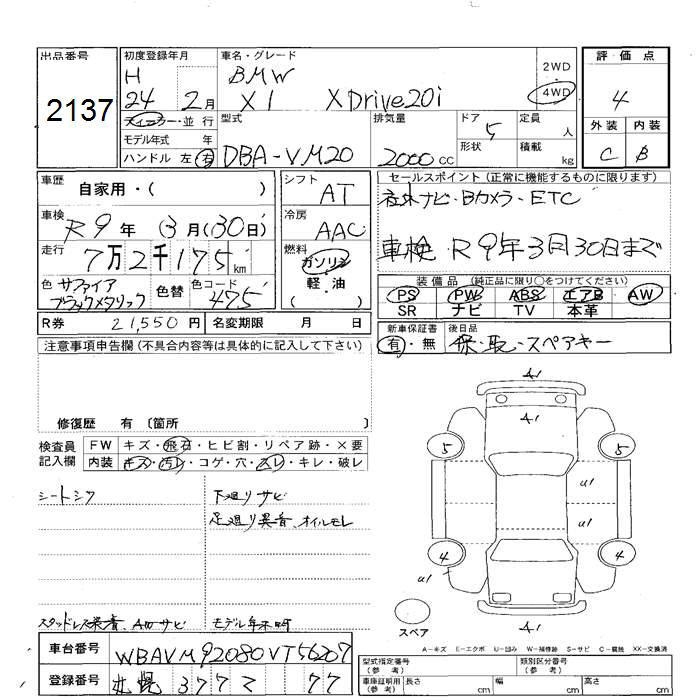 出品番号
2137
初度登録年月
H
24 2月
車名・グレード
BMW
X1 XDrive20i
2WD
4WD
評価点
4
外装 内装
C B
ディーラー・並行
モデル年式 年
ハンドル 左 右
型式
DBA-VM20
排気量
2000 cc
ドア 5
形状
定員 人
積載 kg
車歴
自家用・( )
車検
R9年 (3月(30日)
走行
7万2千175km
色 サファイア
ブラックメタリック
色替
色コード
475
シフト
AT
冷房
AAC
燃料
ガソリン
軽・油
セールスポイント(正常に機能するものに限ります)
社外ナビ・Bカメラ・ETC
車検 R9年3月30日まで
装備品 (純正品に限り○をつけてください)
PS PW ABS エアB AW
SR ナビ TV 本革
R券 21,550円
名変期限 月 日
新車保証書
有・無
後日品
保・取・スペアキー
注意事項申告欄(不具合内容等は具体的に記入して下さい)
修復歴 有 〔箇所 〕
検査員
記入欄
FW キズ・飛石・ヒビ割・リペア跡・×要
内装 キズ・汚レ・コゲ・穴・スレ・キレ・破レ
シートシワ
スタッドレス装着、AWサビ
下廻りサビ
足廻り異音、オイルモレ
モデル年不明
A1
A1
5 5
u1
u1
4 4
u1
A1
A1
スペア
A-キズ E-エクボ U-凹み W-補修跡 S-サビ C-腐蝕 XX-交換済
車台番号
WBAVM92080VT56207
登録番号
札幌 377 マ 77
型式指定番号
(参考)
類別区分番号
(参考)
車庫証明用
(参考)
長さ cm
幅 cm
高さ cm